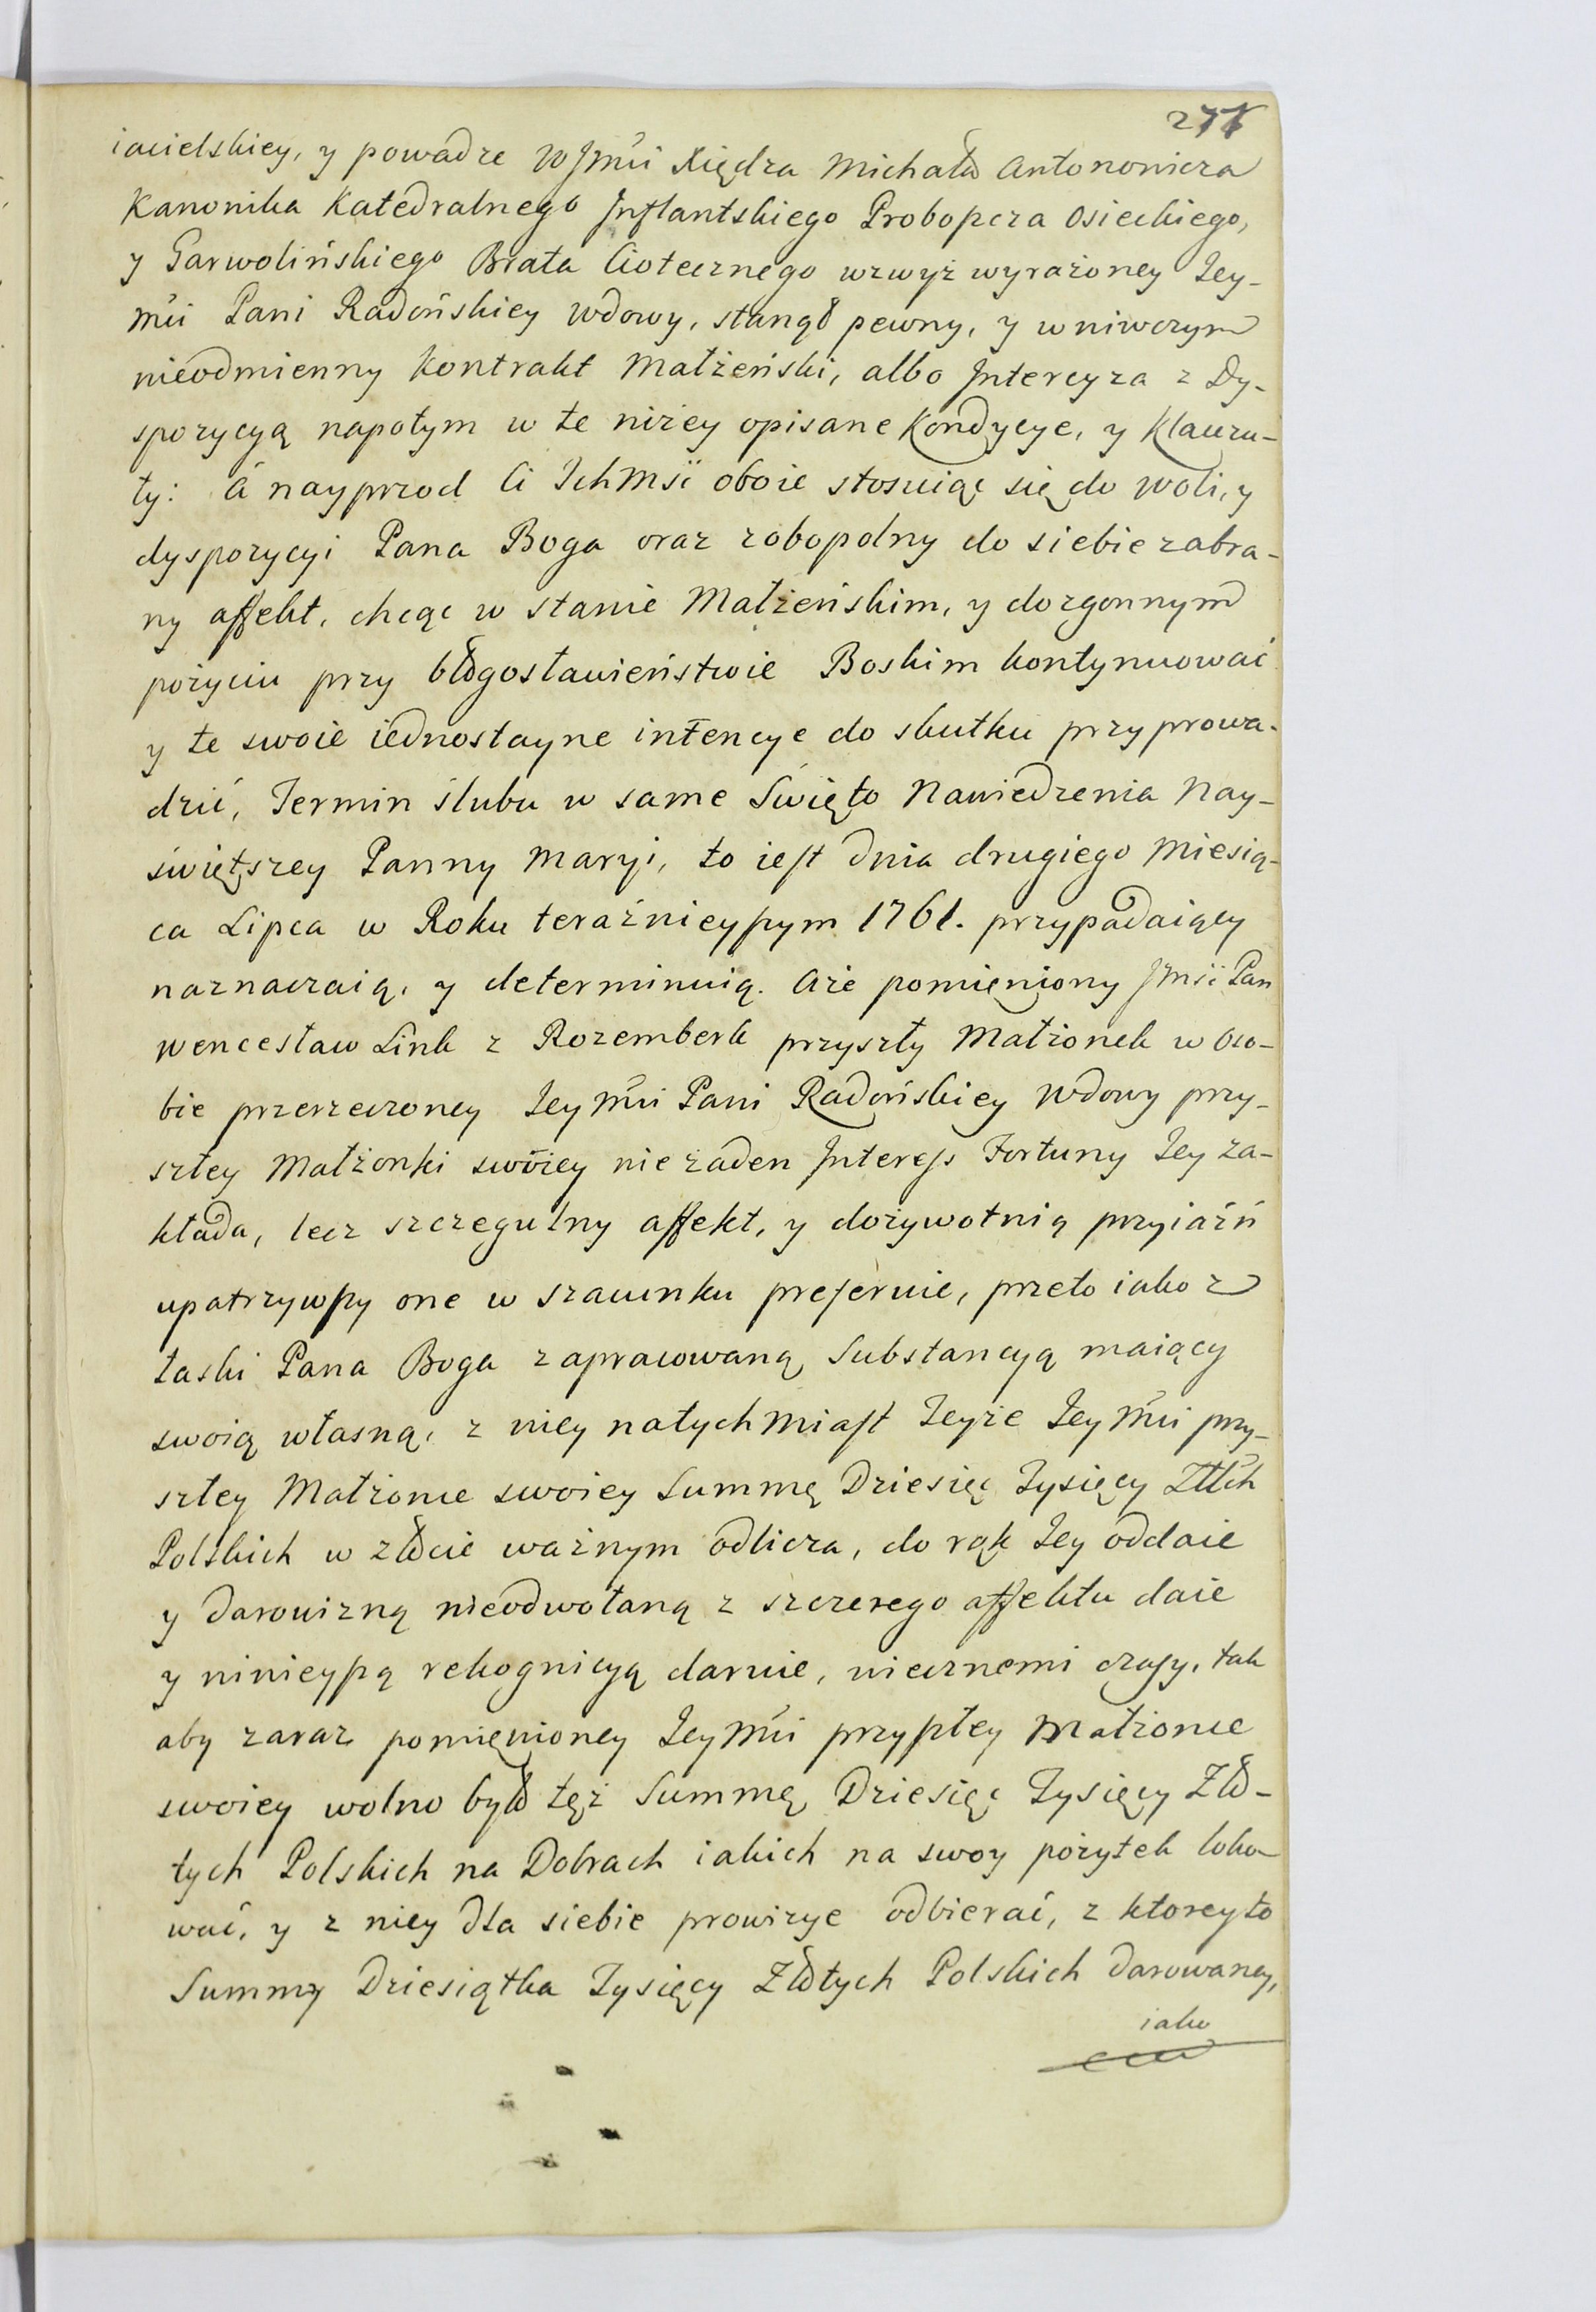 iacielskiey, y powadze WJmći Xiędza Michała Antonowicza
Kanonika Katedralnego Jnflantskiego Proboszcza Osieckiego,
y Garwolińskiego Brata Ciotecznego wzwyż wyrażoney Jey-
mći Pani Radońskiey Wdowy, stanął pewny, y w niwczym
nieodmienny Kontrakt Małżeński, albo Jntercyza z Dy-
spozycyą napotym w te niżey opisane Kondycye, y Klauzu-
ły: A nayprzod Ci Ichmść oboie stosuiąc się do woli, y
dyspozycyi Pana Boga oraz zobopolny do siebie zabra-
ny affekt, chcąc w stanie Małżeńskim, y dozgonnym
pożyciu przy błogosławieństwie Boskim kontynuować
y te swoie iednostayne intencye do skutku przyprowa-
dzić, Termin ślubu w same Święto Nawiedzenia Nay-
świętszey Panny Maryi, to iest dnia drugiego Miesią-
ca Lipca w Roku teraźnieyszym 1761. przypadaiący
naznaczaią, y determinuią. Aże pomieniony Jmść Pan
Wencesław Link z Rozemberk przyszły Małżonek w Oso-
bie przerzeczoney Jeymći Pani Radońskiey Wdowy przy-
szłey Małżonki swoiey nie żaden Jnteress Fortuny Jey za-
kłada, lecz szczegulny affekt, y dożywotnią przyiaźń
upatrzywszy one w szacunku preferuie, przeto iako z
łaski Pana Boga zapracowaną Substancyą maiący
swoią własną, z niey natychmiast Jeyże Jeymći przy-
szłey Małżonce swoiey Summę Dziesięć Tysięcy Złłch
Polskich w złocie ważnym odlicza, do rąk Jey oddaie
y darowizną nieodwołaną z szczerego affektu daie
y ninieyszą rekognicyą daruie, wiecznemi czasy, tak
aby zaraz pomienioney Jeymći przyszłey Małżonce
swoiey wolno było tęż Summę Dziesięć Tysięcy Zło-
tych Polskich na Dobrach iakich na swoy pożytek loko-
wać, y z niey dla siebie prowizye odbierać, z ktoreyto
Summy Dziesiątka Tysięcy Złotych Polskich darowaney,
iako